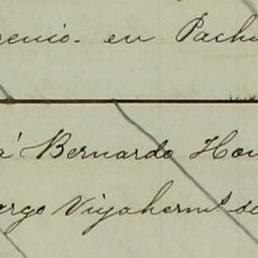 en Pachu
á Bernardo Hou
argo Viyaherm.s de